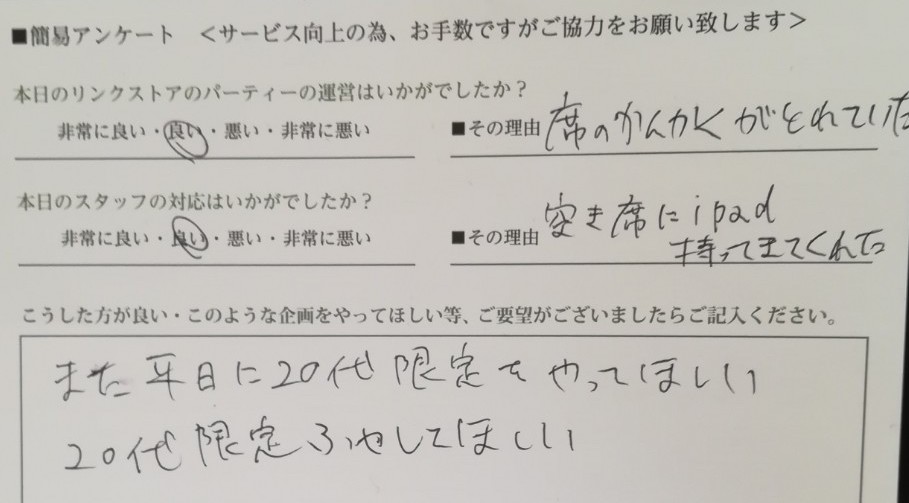 ■簡易アンケート ＜サービス向上の為、お手数ですがご協力をお願い致します＞
本日のリンクストアのパーティーの運営はいかがでしたか？
非常に良い・良い・悪い・非常に悪い ■その理由 席のかんかくがとれていた
本日のスタッフの対応はいかがでしたか？
空き席にipad
非常に良い・良い・悪い・非常に悪い ■その理由 持ってきてくれた
こうした方が良い・このような企画をやってほしい等、ご要望がございましたらご記入ください。
また平日に20代限定をやってほしい
20代限定ふやしてほしい